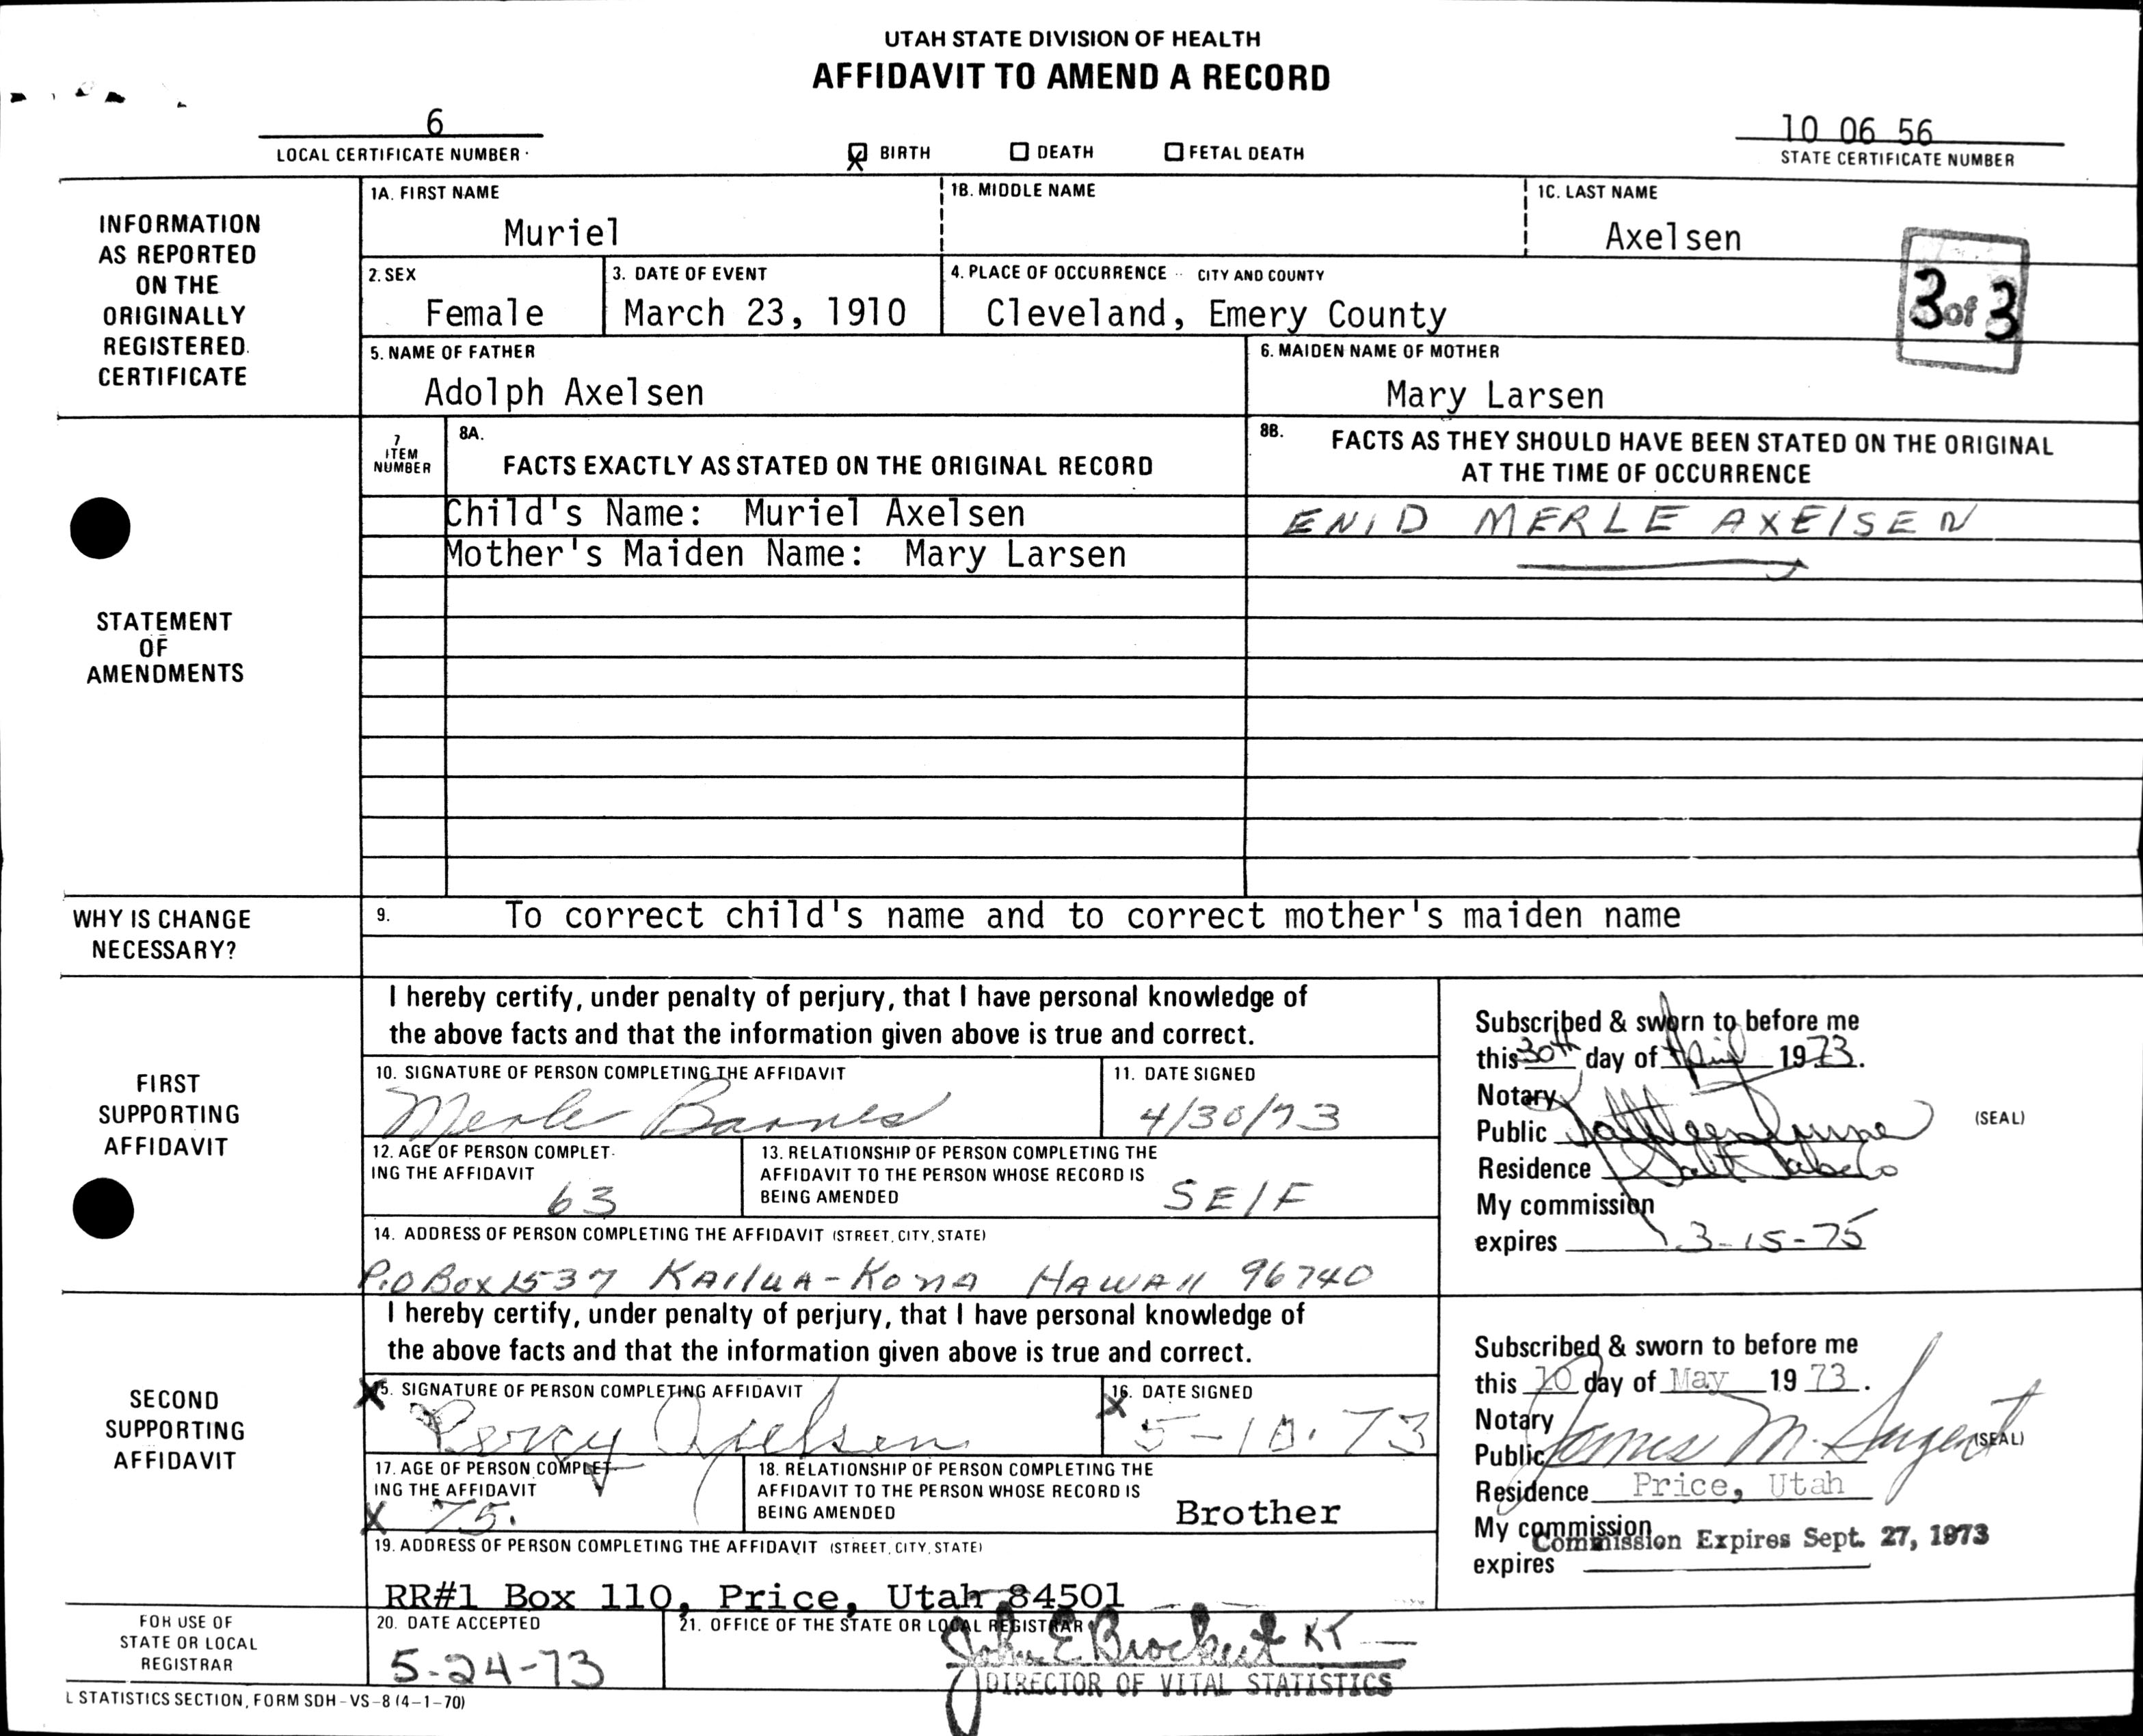 UTAH STATE DIVISION OF HEALTH
AFFIDAVIT TO AMEND A RECORD
6
LOCAL CERTIFICATE NUMBER
X BIRTH DEATH FETAL DEATH
10 06 56
STATE CERTIFICATE NUMBER
INFORMATION AS REPORTED ON THE ORIGINALLY REGISTERED CERTIFICATE
1A. FIRST NAME 1B. MIDDLE NAME 1C. LAST NAME
Muriel Axelsen
3 of 3
2. SEX 3. DATE OF EVENT 4. PLACE OF OCCURRENCE CITY AND COUNTY
Female March 23, 1910 Cleveland, Emery County
5. NAME OF FATHER 6. MAIDEN NAME OF MOTHER
Adolph Axelsen Mary Larsen
STATEMENT OF AMENDMENTS
7 ITEM NUMBER
8A. FACTS EXACTLY AS STATED ON THE ORIGINAL RECORD
8B. FACTS AS THEY SHOULD HAVE BEEN STATED ON THE ORIGINAL
AT THE TIME OF OCCURRENCE
Child's Name: Muriel Axelsen ENID MERLE AXElSEN
Mother's Maiden Name: Mary Larsen
WHY IS CHANGE NECESSARY?
9. To correct child's name and to correct mother's maiden name
FIRST SUPPORTING AFFIDAVIT
I hereby certify, under penalty of perjury, that I have personal knowledge of
the above facts and that the information given above is true and correct.
10. SIGNATURE OF PERSON COMPLETING THE AFFIDAVIT 11. DATE SIGNED
Merle Barnes 4/30/73
12. AGE OF PERSON COMPLET-
ING THE AFFIDAVIT
63
13. RELATIONSHIP OF PERSON COMPLETING THE
AFFIDAVIT TO THE PERSON WHOSE RECORD IS
BEING AMENDED
SElF
14. ADDRESS OF PERSON COMPLETING THE AFFIDAVIT (STREET, CITY, STATE)
P.O Box 1537 KAIluA-KonA HAWAII 96740
Subscribed & sworn to before me
this 30th day of April 1973.
Notary
Public (SEAL)
Residence Salt
My commission
expires 3-15-75
SECOND SUPPORTING AFFIDAVIT
I hereby certify, under penalty of perjury, that I have personal knowledge of
the above facts and that the information given above is true and correct.
X 15. SIGNATURE OF PERSON COMPLETING AFFIDAVIT X 16. DATE SIGNED
Percy Axelsen 5-10-73
17. AGE OF PERSON COMPLET-
ING THE AFFIDAVIT
X 75.
18. RELATIONSHIP OF PERSON COMPLETING THE
AFFIDAVIT TO THE PERSON WHOSE RECORD IS
BEING AMENDED
Brother
19. ADDRESS OF PERSON COMPLETING THE AFFIDAVIT (STREET, CITY, STATE)
RR#1 Box 110, Price, Utah 84501
Subscribed & sworn to before me
this 10 day of May 1973.
Notary
Public James M. Sargent (SEAL)
Residence Price, Utah
My commission
Commission Expires Sept. 27, 1973
expires
FOR USE OF STATE OR LOCAL REGISTRAR
20. DATE ACCEPTED 21. OFFICE OF THE STATE OR LOCAL REGISTRAR
5-24-73 John E Brockert KT
DIRECTOR OF VITAL STATISTICS
L STATISTICS SECTION, FORM SDH-VS-8 (4-1-70)